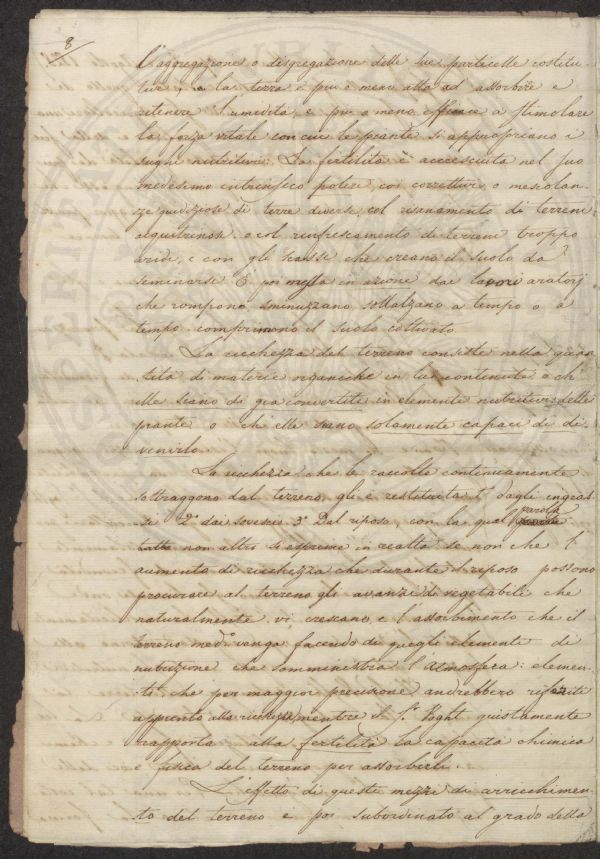 8
l'aggregazione o disgregazione delle sue particelle costitu-
tive, la terra è piu o meno atta ad assorbire e
ritenere l'umedità, e piu o meno efficace a stimolare
la forza vitale con cui le piante si appropriano i
sughi nutritivi. La fertilità è accresciuta nel suo
medesimo intrinseco potere, coi correttivi o mescolan-
ze giudiziose di terre diverse, col risanamento di terreni
acquitrinosi o col rinfrescamento di terreni troppo
aridi, e con gli scassi che creano il suolo da
seminarsi. È poi messa in azione dai lavori aratorj
che rompono sminuzzano sollalzano a tempo o a
tempo comprimono il suolo coltivato.
La ricchezza del terreno consiste nella quan-
tità di materie organiche in lui contenute o ch
elle siano di gia convertite in elementi nutritivi delle
piante o ch'elle siano solamente capaci di di-
venirlo.
La ricchezza che le raccolte continuamente
sottraggono dal terreno, gli è restituita 1° dagli ingras-
si 2° dai sovesci 3° Dal riposo, con la qual parola
non altro si esprime in realtà se non che l'
aumento di ricchezza che durante il riposo possono
procurare al terreno gli avanzi di vegetabili che
naturalmente vi crescano, e l'assorbimento che il
terreno med.° venga facendo di quegli elementi di
nutrizione che somministra l'atmosfera: elemen-
ti che per maggior precisione andrebbero riferiti
appunto alla ricchezza, mentre il S.r Voght giustamente
rapporta alla fertilità la capacità chimica
e fisica del terreno per assorbirli.
L'effetto di questi mezzi di arricchimen-
to del terreno è poi subordinato al grado della